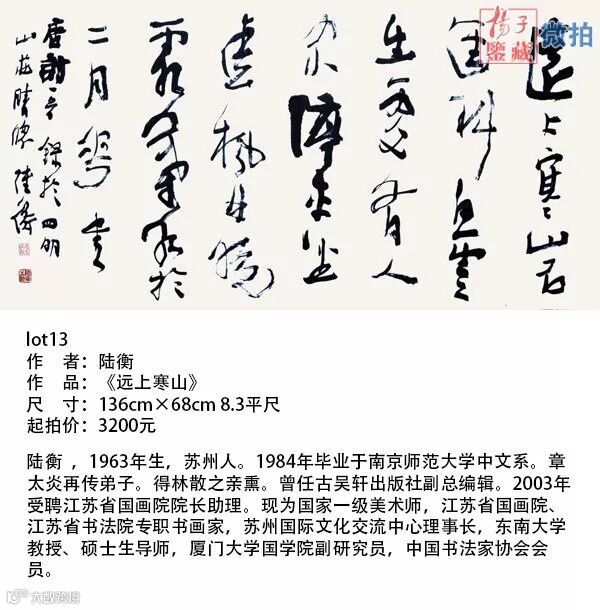 揚子
鑒藏
微拍
遠上寒山石
徑斜白雲
生處有人
家停車坐
愛楓林晚
霜葉紅於
二月花 書
唐詩 錄於四明
山莊晴 陸衡
lot13
作 者：陆衡
作 品：《远上寒山》
尺 寸：136cm×68cm 8.3平尺
起拍价：3200元
陆衡 ，1963年生，苏州人。1984年毕业于南京师范大学中文系。章
太炎再传弟子。得林散之亲熏。曾任古吴轩出版社副总编辑。2003年
受聘江苏省国画院院长助理。现为国家一级美术师，江苏省国画院、
江苏省书法院专职书画家，苏州国际文化交流中心理事长，东南大学
教授、硕士生导师，厦门大学国学院副研究员，中国书法家协会会
员。
大数跨境